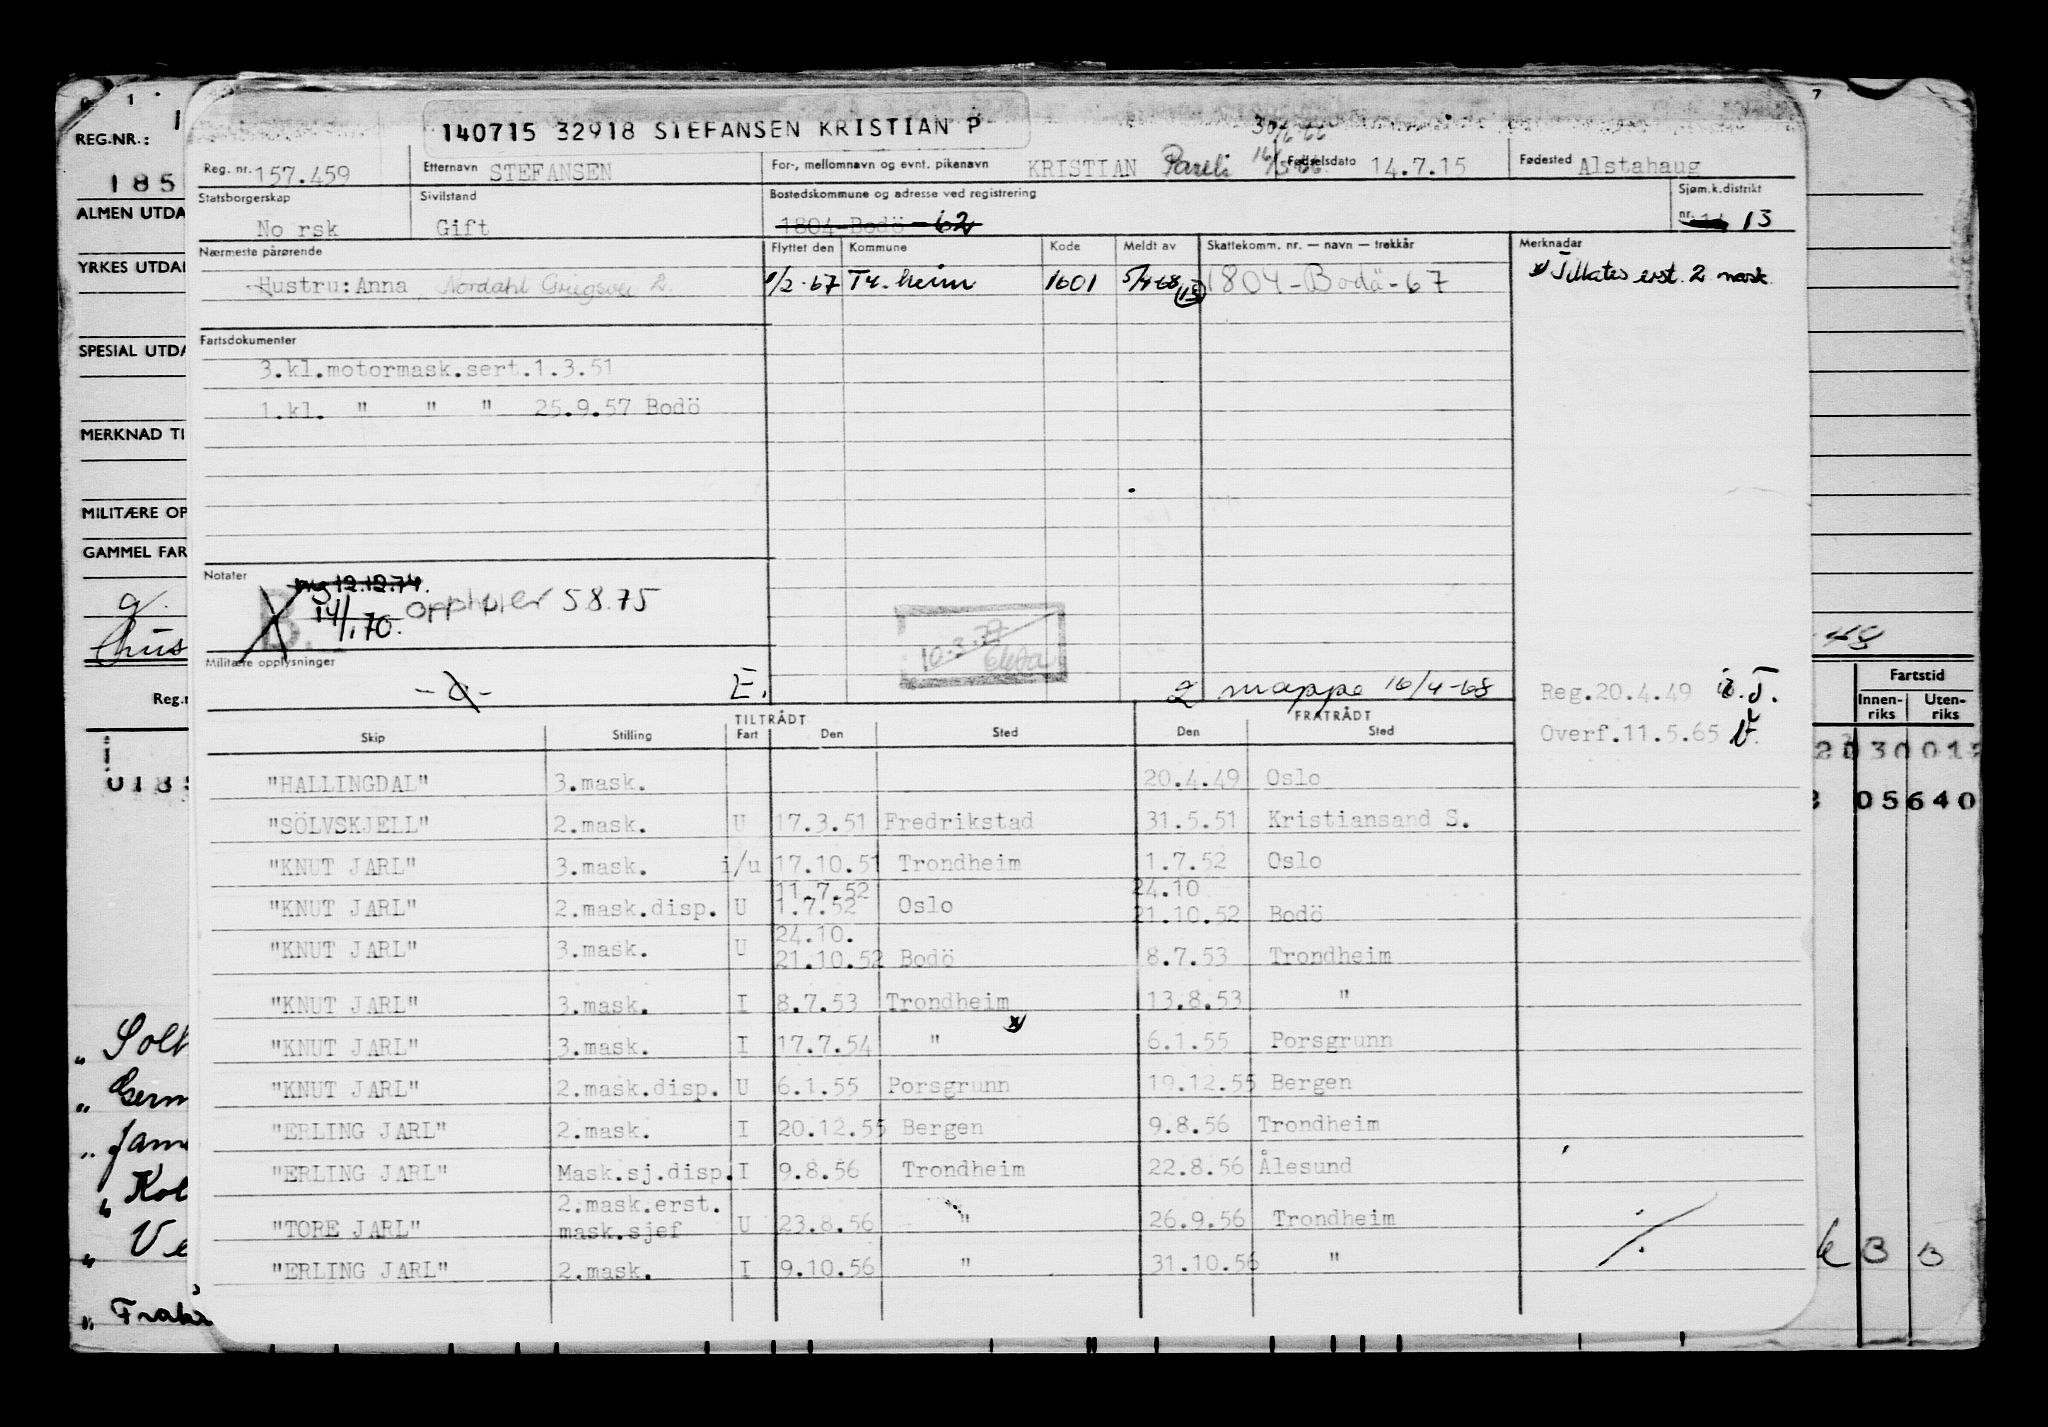 140715 32918 STEFANSEN KRISTIAN P
30/6-66
REG.NR.:
Reg. nr. 157.459 Etternavn STEFANSEN For-, mellomnavn og evnt. pikenavn KRISTIAN Pareli 16/5-66 Fødselsdato 14.7.15 Fødested Alstahaug
185
ALMEN UTDA
Statsborgerskap Sivilstand Bostedskommune og adresse ved registrering Sjøm.k.distrikt
Norsk Gift 1804 Bodö - 62 nr. 13
Nærmeste pårørende Flyttet den Kommune Kode Meldt av Skattekomm. nr. — navn — trekkår Merknader
YRKES UTDA
Hustru: Anna, Nordahl Griegsvei 2. 1/2-67 Tr.heim 1601 5/4-68 (13) 1804-Bodö-67 x) Tillates erst. 2 mask.
SPESIAL UTDA
Fartsdokumenter
3.kl.motormask.sert.1.3.51
1.kl. " " " 25.9.57 Bodö
MERKNAD TI
MILITÆRE OP
GAMMEL FAR
Notater
B. mg 12.12.74.
14/1.70. opphører 5.8.75
10.3.32
Militære opplysninger
-a- E. 2 mappe 16/4-68 Reg.20.4.49
Overf.11.5.65
Reg.n
Fartstid
Innen-riks Uten-riks
TILTRÅDT FRATRÅDT
Skip Stilling Fart Den Sted Den Sted
"HALLINGDAL" 3.mask. 20.4.49 Oslo
"SÖLVSKJELL" 2.mask. U 17.3.51 Fredrikstad 31.5.51 Kristiansand S.
"KNUT JARL" 3.mask. i/u 17.10.51 Trondheim 1.7.52 Oslo
11.7.52 24.10
"KNUT JARL" 2.mask.disp. U 1.7.52 Oslo 21.10.52 Bodö
24.10.
"KNUT JARL" 3.mask. U 21.10.52 Bodö 8.7.53 Trondheim
"KNUT JARL" 3.mask. I 8.7.53 Trondheim 13.8.53 "
x)
"KNUT JARL" 3.mask. I 17.7.54 " 6.1.55 Porsgrunn
"KNUT JARL" 2.mask.disp. U 6.1.55 Porsgrunn 19.12.55 Bergen
"ERLING JARL" 2.mask. I 20.12.55 Bergen 9.8.56 Trondheim
"ERLING JARL" Mask.sj.disp. I 9.8.56 Trondheim 22.8.56 Ålesund
2.mask.erst.
"TORE JARL" mask.sjef U 23.8.56 " 26.9.56 Trondheim
"ERLING JARL" 2.mask. I 9.10.56 " 31.10.56 "
05640